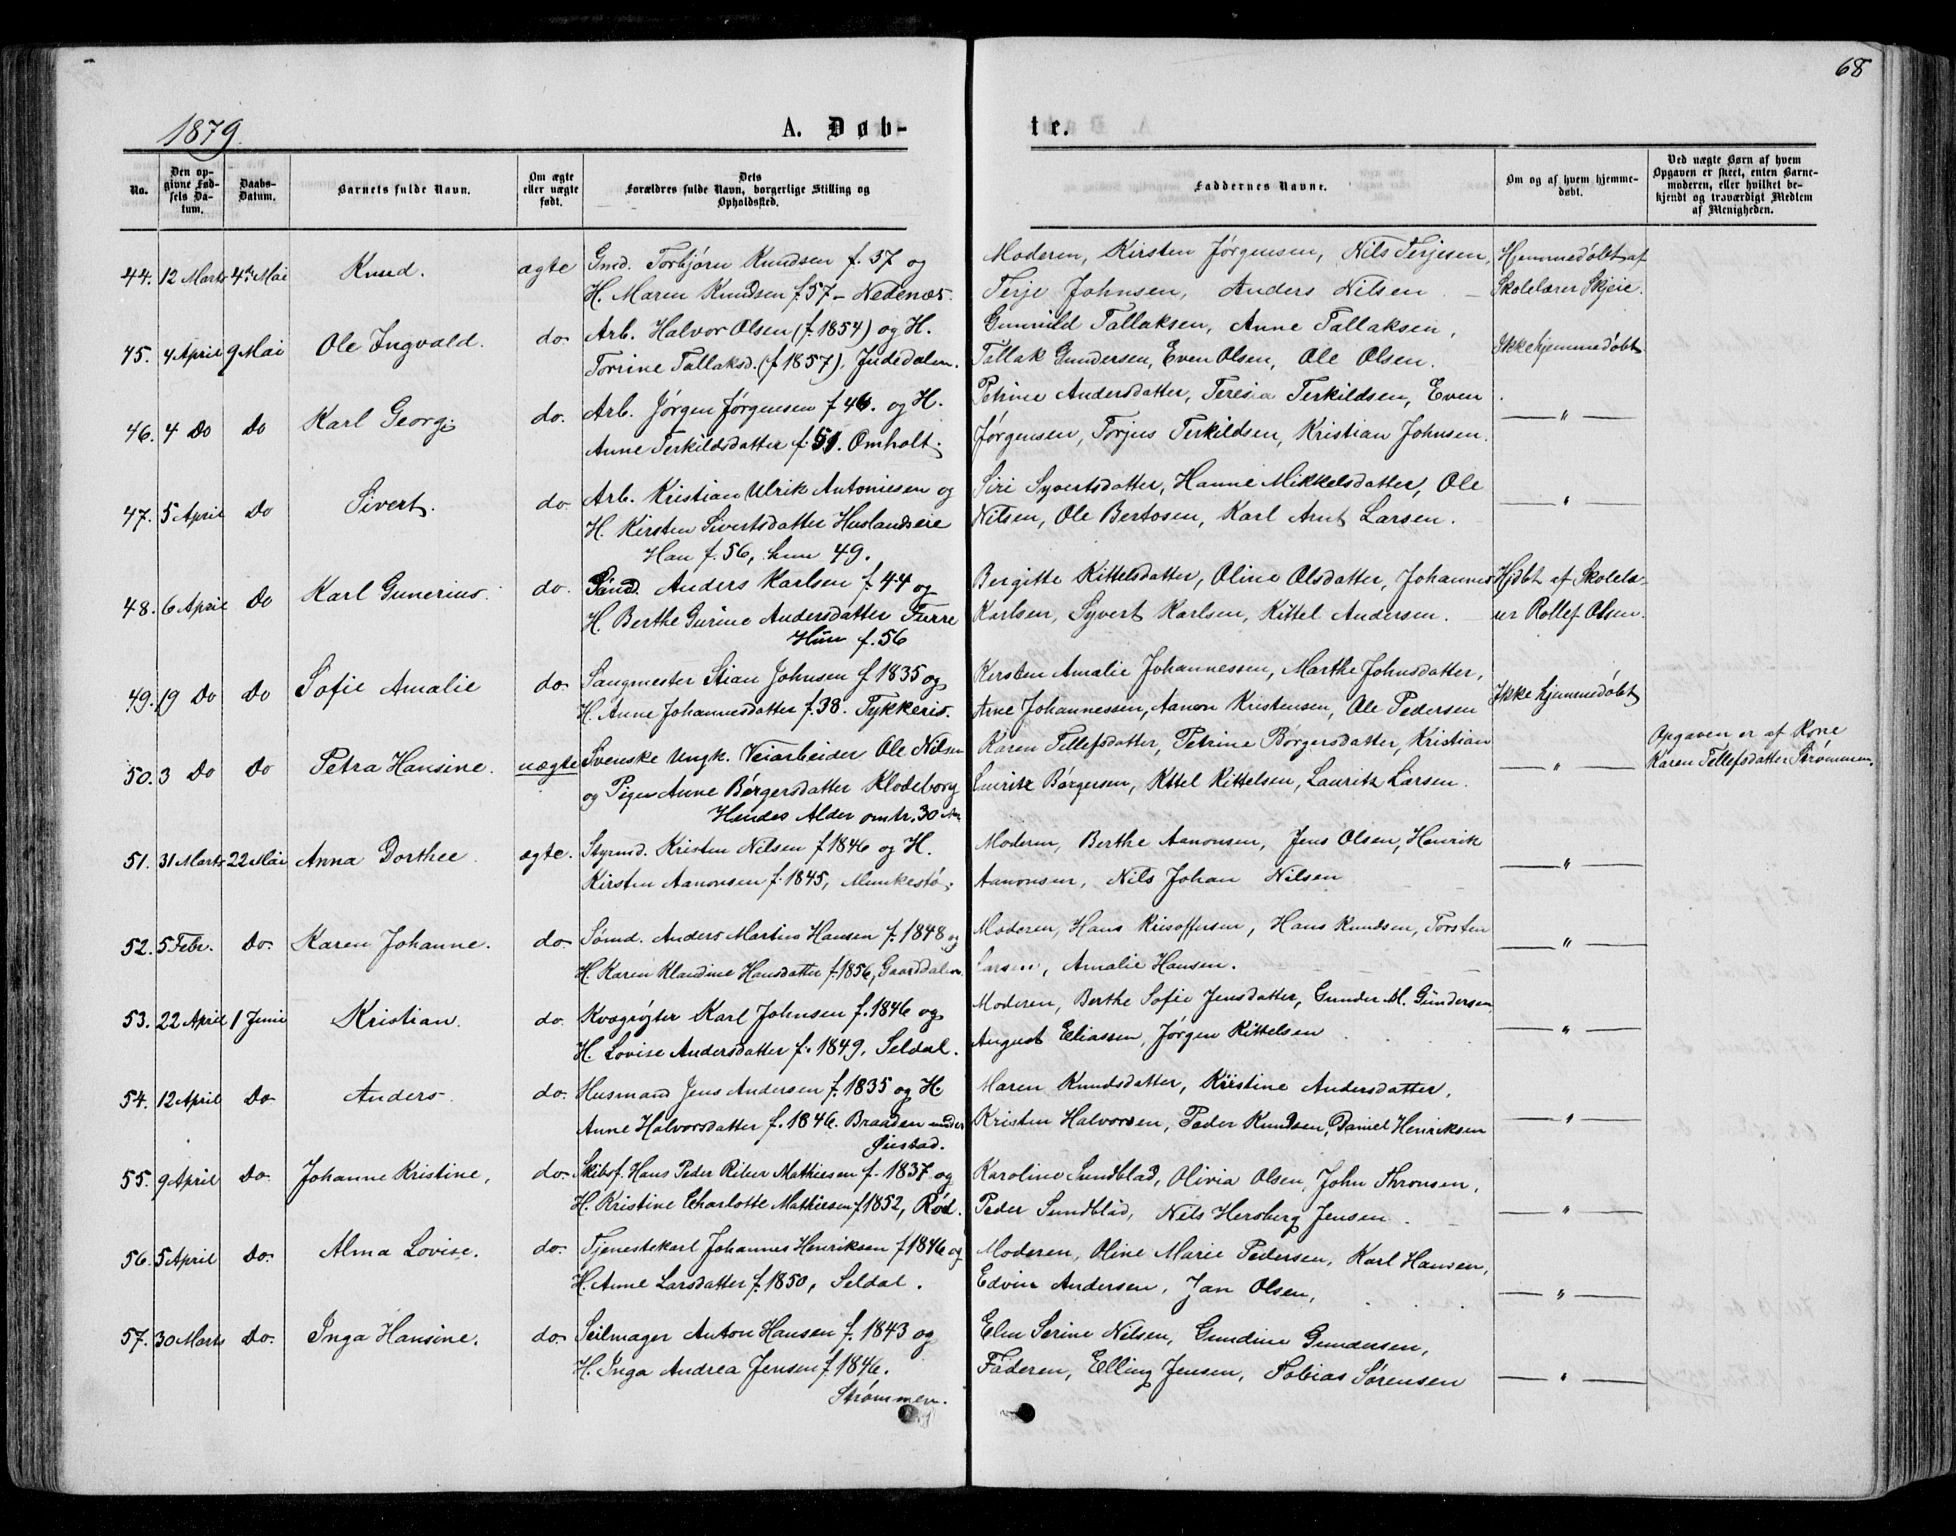 68
1879.
A. Døb-
te.
No.
Den op-
givne Fød-
sels Da-
tum.
Daabs-
Datum.
Barnets fulde Navn.
Om ægte
eller uægte
født.
Dets
Forældres fulde Navn, borgerlige Stilling og
Opholdssted.
Faddernes Navne.
Om og af hvem hjemme-
døbt.
Ved uægte Børn af hvem
Opgaven er skeet, enten Barne-
moderen, eller hvilket be-
kjendt og troværdigt Medlem
af Menigheden.
44. 12 Marts 4de Mai Knud. ægte Gmd. Torbjørn Knudsen f. 57 og
H. Maren Knudsen f 57 - Nedenæs.
Moderen, Kirsten Jørgensen, Nils Terjesen,
Terje Johnsen, Anders Nilsen.
Hjemmedøbt af
Skolelærer Skjeie.
45. 4 April 9 Mai Ole Ingvald. do. Arb. Halvor Olsen (f. 1854) og H.
Torine Tallaksd. (f 1857). Judedalen.
Gunvild Tallaksen, Anne Tallaksen,
Tallak Gundersen, Even Olsen, Ole Olsen.
Ikke hjemmedøbt
46. 4 Do Do Karl Georg. do. Arb. Jørgen Jørgensen f 46. og H.
Anne Terkildsdatter f. 51. Omholt.
Petrine Andersdatter, Teresia Terkildsen, Even
Jørgensen, Torjus Terkildsen, Kristian Johnsen.
— " —
47. 5 April Do Sivert. do. Arb. Kristian Ulrik Antoniesen og
H. Kirsten Sivertsdatter Huslandseie
Han f. 56, hun 49.
Siri Syvertsdatter, Hanne Mikkelsdatter, Ole
Nilsen, Ole Bertosen, Karl Arnt Larsen.
— " —
48. 6 April Do Karl Gunerius. do. Sømd. Anders Karlsen f 44 og
H. Berthe Gurine Andersdatter Furre
Hun f. 56
Bergitte Kittelsdatter, Oline Olsdatter, Johannes
Karlsen, Syvert Karlsen, Kittel Andersen.
Hjdbt af Skolelæ-
rer Rollef Olsen.
49. 19 Do Do Sofie Amalie do. Sangmester Stian Johnsen f 1835 og
H. Anne Johannesdatter f. 38. Tykkeris.
Kersten Amalie Johannessen, Marthe Johnsdatter,
Arne Johannessen, Aanon Kristensen, Ole Pedersen
Ikke hjemmedøbt
50. 3 Do Do Petra Hansine. uægte Svenske Ungk. Veiarbeider Ole Nilsen
og Pigen Anne Børgersdatter Klodeborg
Hendes Alder omtr. 30 Aar
Karen Tellefsdatter, Petrine Børgersdatter, Kristian
Lauritz Børgersen, Kittel Kittelsen, Lauritz Larsen.
— " —
Opgaven er af Kone
Karen Tellefsdatter Strømmen.
51. 31 Marts 22 Mai Anna Dorthee. ægte. Styrmd. Kristen Nilsen f 1846 og H.
Kirsten Aanonsen f. 1845, Munkestø.
Moderen, Berthe Aanonsen, Jens Olsen, Henrik
Aanonsen, Nils Johan Nilsen
— " —
52. 5 Febr. Do. Karen Johanne. do. Sømd. Anders Martius Hansen f. 1848 og
H. Karen Klaudine Hansdatter f. 1856, Gaarddalen.
Moderen, Hans Krisoffersen, Hans Knudsen, Torsten
Larsen, Amalie Hansen.
— " —
53. 22 April 1 Juni Kristian. do. Kvægrøgter Karl Johnsen f. 1846 og
H. Lovise Andersdatter f. 1849, Seldal.
Moderen, Berthe Sofie Jensdatter, Gunder M. Gundersen
August Eliassen, Jørgen Kittelsen
— " —
54. 12 April Do. Anders. do. Husmand Jens Andersen f. 1835 og H.
Anne Halvorsdatter f. 1846. Braaden under
Øiestad.
Maren Knudsdatter, Kristine Andersdatter,
Kristen Halvorsen, Peder Knudsen, Daniel Henriksen
— " —
55. 9 April Do. Johanne Kristine, do. Skibsf. Hans Peder Riber Mathiesen f. 1837 og
H. Kristine Charlotte Mathiesen f 1852, Rød.
Karoline Sundblad, Olivia Olsen, John Thronsen,
Peder Sundblad, Nils Hersberg Jensen.
— " —
56. 5 April Do. Alma Lovise. do. Tjenestekarl Johannes Henriksen f 1846 og
H. Anne Larsdatter f. 1850, Seldal.
Moderen, Oline Marie Pedersen, Karl Hansen,
Edvin Andersen, Jan Olsen,
— " —
57. 30 Marts Do. Inga Hansine. do. Seilmager Anton Hansen f. 1843 og
H. Inga Andrea Jensen f 1846.
Strømmen.
Elen Serine Nilsen, Gundine Gundersen,
Faderen, Elling Jensen, Tobias Sørensen
— " —